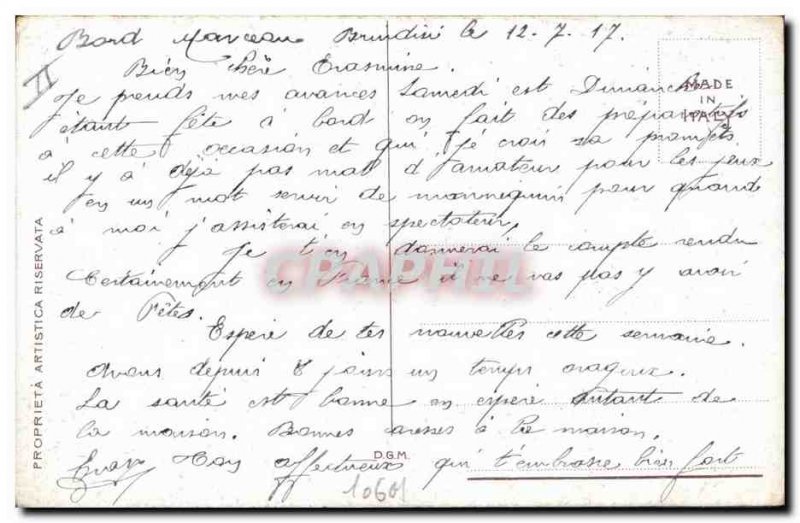 II
Bord Marceau Brindisi le 12.7.17.
Bien chère Erasmine.
Je prends mes avances Samedi est Dimanche
étant fête à bord on fait des préparatifs
à cette occasion et qui je crois sa promets.
il y à déjà pas mal d'amateur pour les jeux
en un mot servir de mannequin pour quande
à moi j'assisterai en spectateur,
Je t'en donnerai le compte rendu
Certainement en France il ne vas pas y avoir
de Fêtes.
Espère de tes nouvelles cette semaine.
Avons depuis 8 jours un temps orageux.
La santé est bonne en espère autant de
la maison. Bonnes à la maison.
Ton affectueux qui t'embrasse bien fort
MADE
IN
ITALY
PROPRIETÀ ARTISTICA RISERVATA
D.G.M.
10601
CPAPHIL